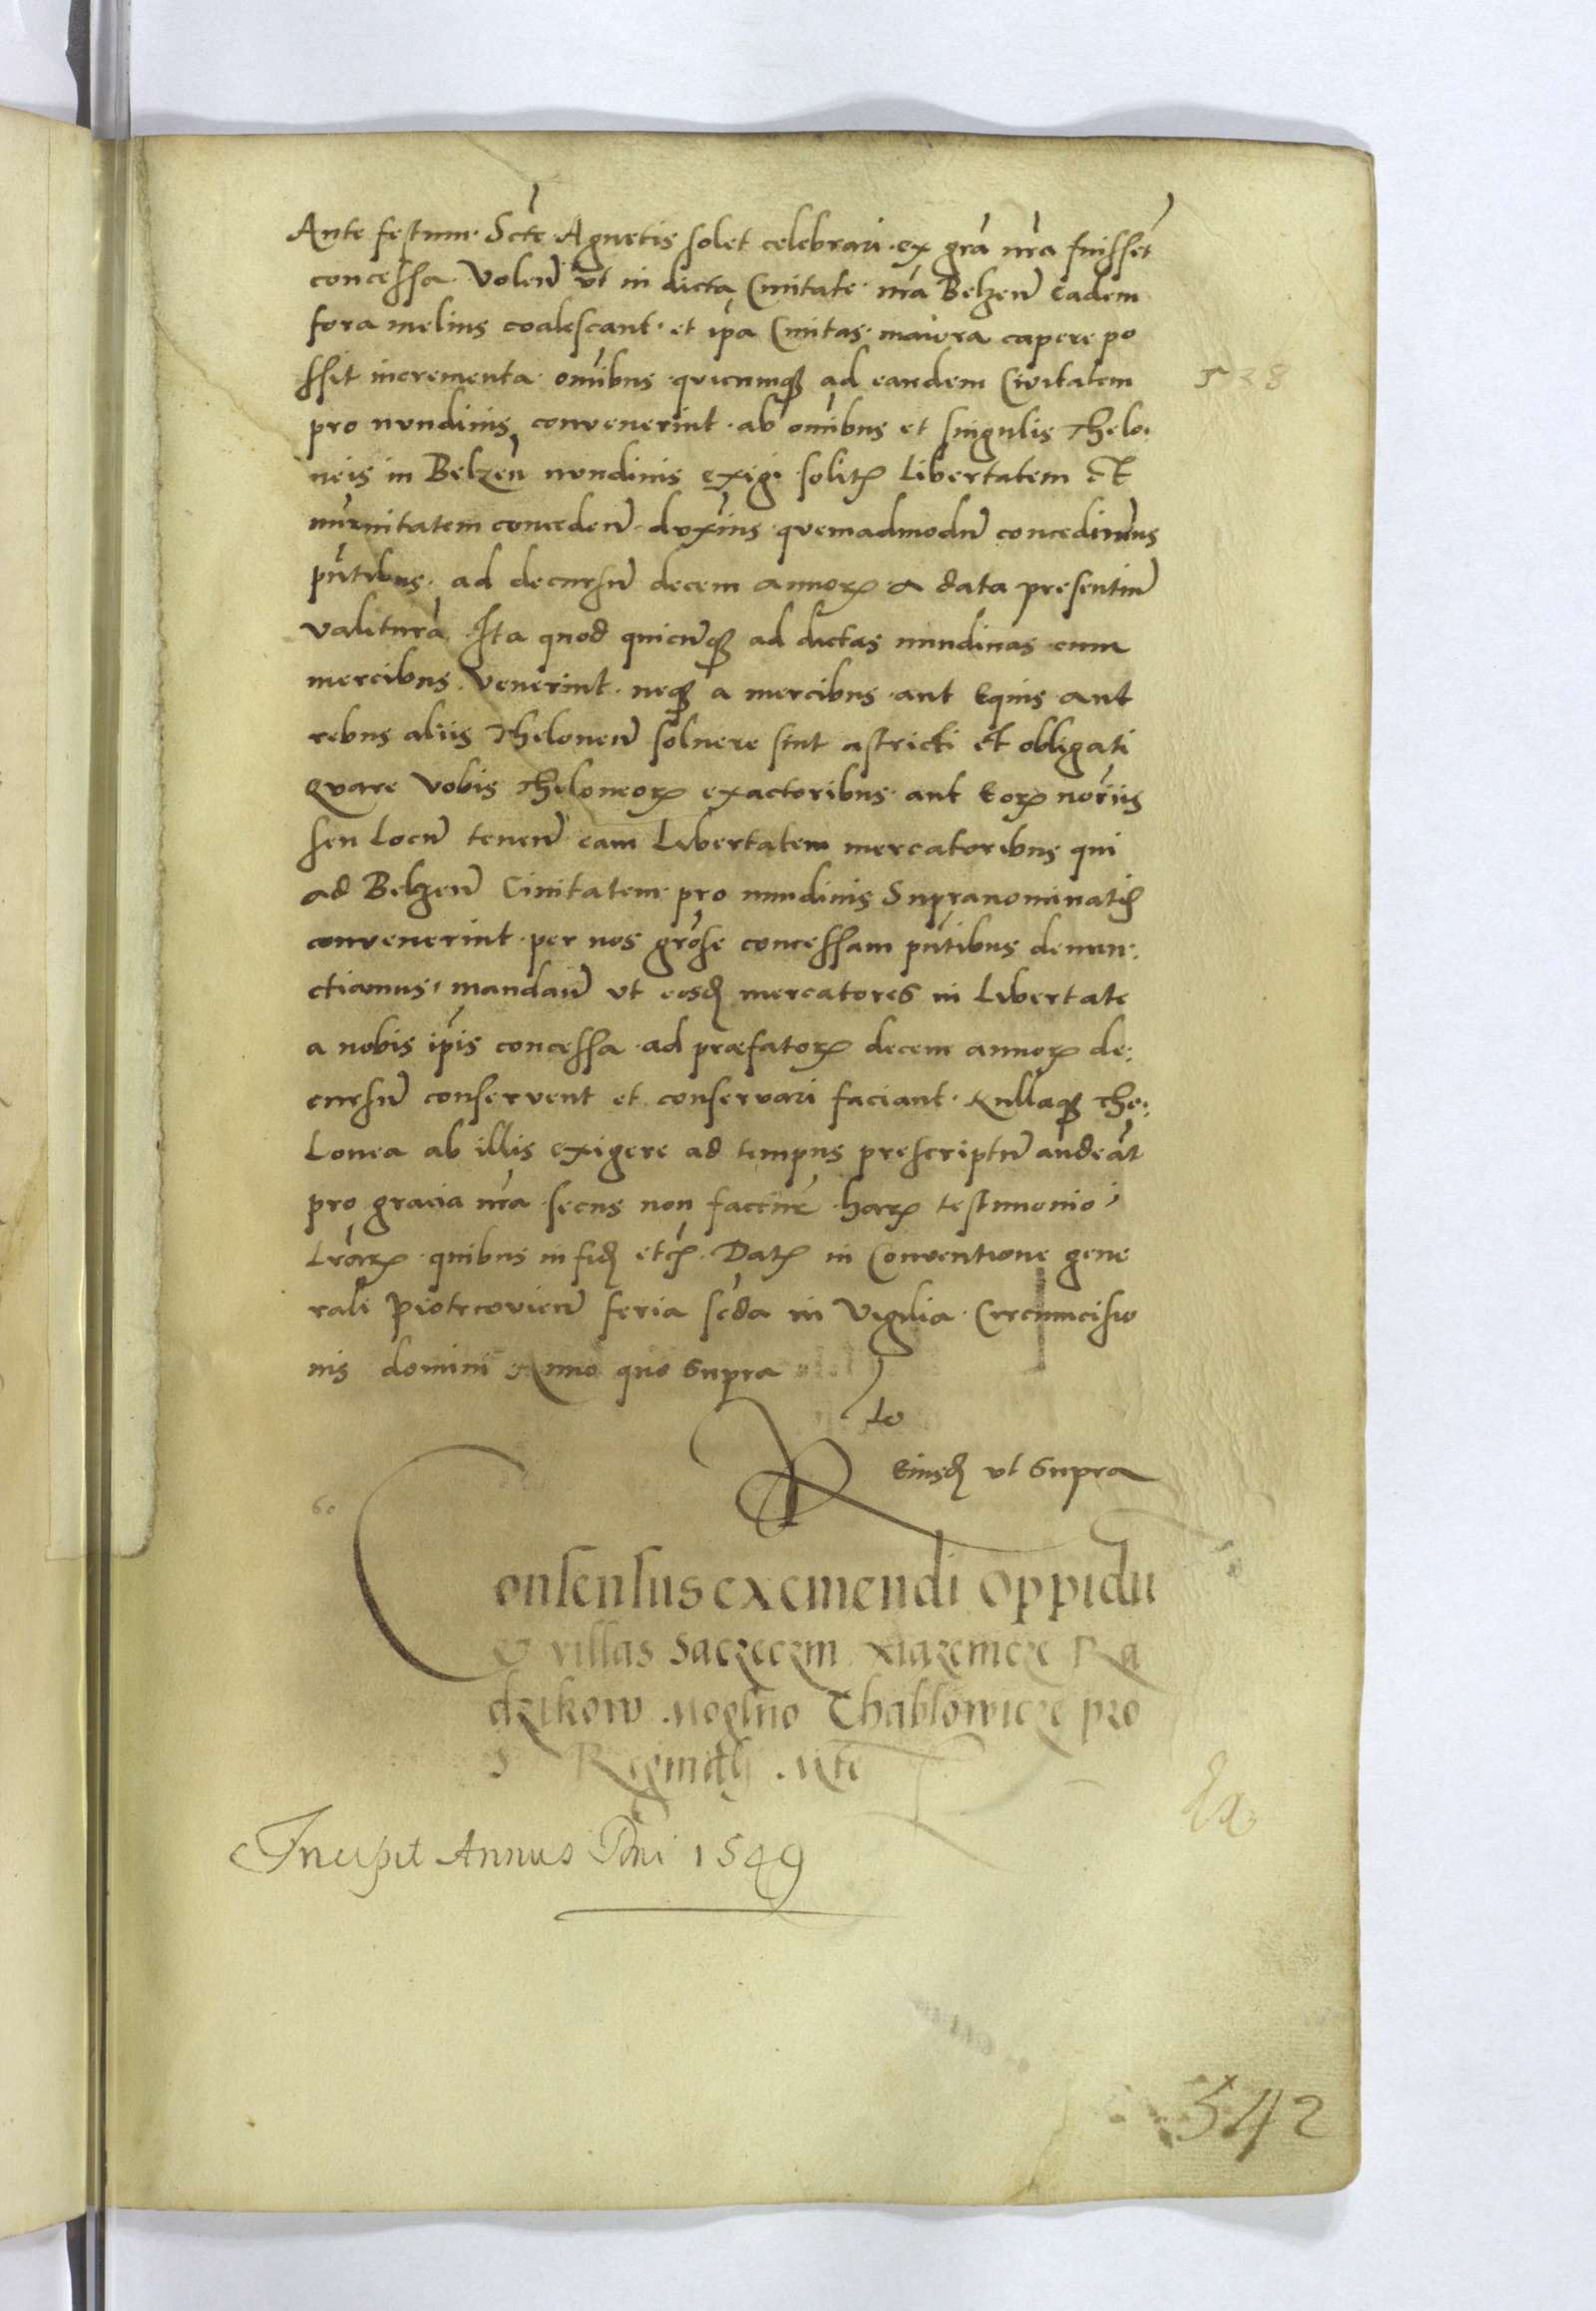 Ante festum Sctę Agnetis solet celebrari ex gra nra fuisset
concessa Volen ut in dicta Civitate nra Belzen Eadem
fora melius coalescant et ipa Civitas maiora capere po
ssit incrementa omibus quicumq ad eandem Civitatem
pro nundinis convenerint ab omibus et singulis Thelo:
neis in Belzen nundinis exigi solitis Libertatem Et
munitatem conceden duximus quemadmodu concedimus
pntibus ad decursu decem annorꝝ a data presentiu
valitura Ita quod quicuq ad dictas nundinas cum
mercibus Venerint neq a mercibus aut Equis aut
rebus aliis Theloneu solvere sint astricti et obligati
Quare Vobis Theloneorꝝ exactoribus aut Eorꝝ noriis
seu Locu tenen eam Libertatem mercatoribus qui
ad Belzen Civitatem pro nundinis Supranominatis
convenerint per nos grose concessam pntibus denun:
ctiamus mandan ut eosd mercatores in Libertate
a nobis ipis concessa ad præfatorꝝ decem annorꝝ de:
cursu conservent et conservari faciant Nullaq The:
Lonea ab illis exigere ad tempus prescriptu audeat
pro gracia nra secus non factur harꝝ testimonio
Lrarꝝ quibus in fid etc Datꝝ in Conventione gene
rali Piotrcovien feria seda in Vigilia Circumcisio
nis domini Anno quo Supra
Eiusd ut Supra
Consensus exemendi oppidu
et villas Saczeczin Xiazemcze Ra
dzikow Moglno Chablowicze pro
Reginali Mte
Incipit Annus Dni 1549
542